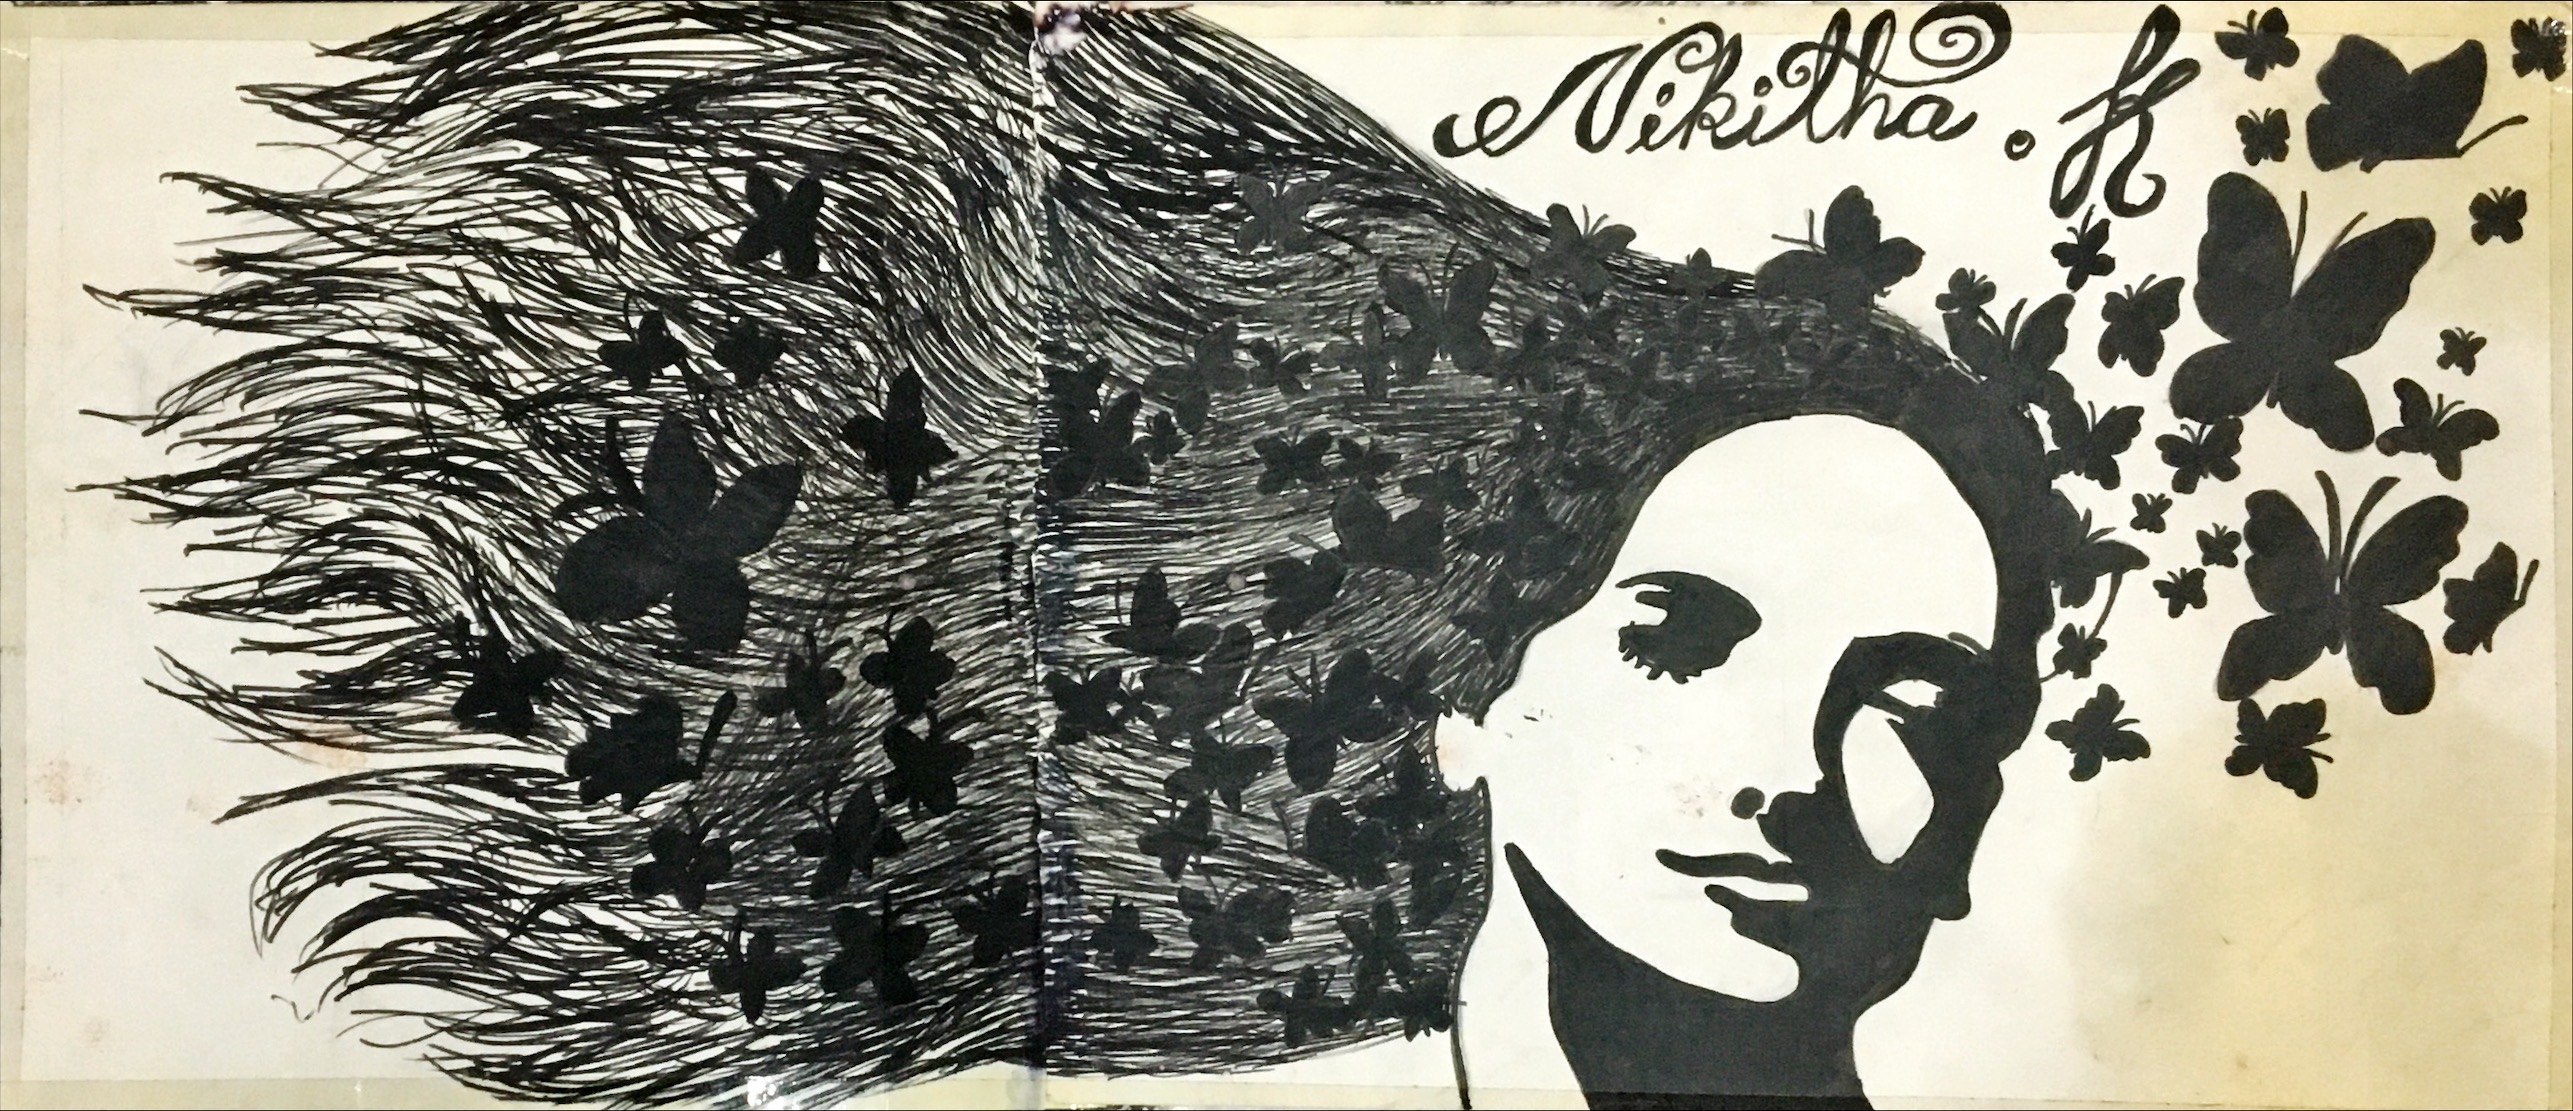 Nikitha . K